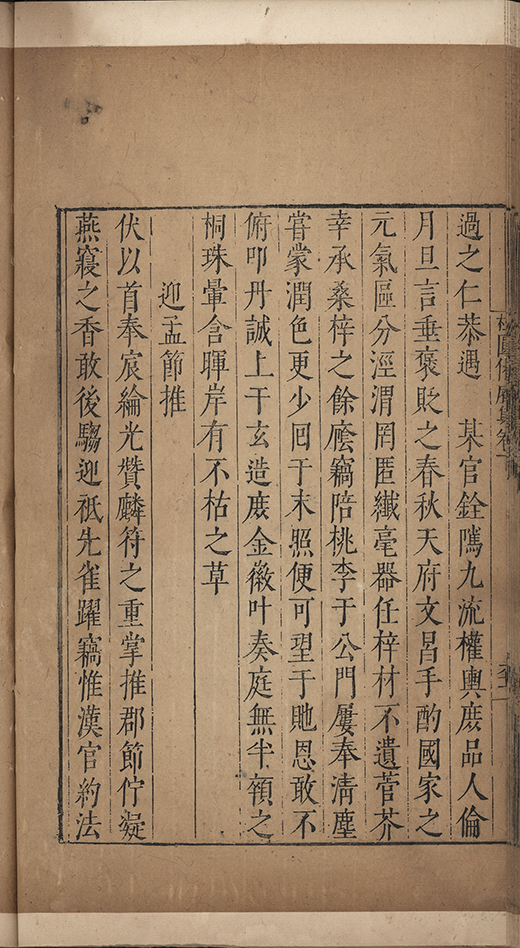 過之仁恭遇 某官銓隲九流權輿庶品人倫
月旦言垂褒貶之春秋天府文昌手酌國家之
元氣區分涇渭罔匿纖毫器任梓材不遺菅芥
幸承桑梓之餘廕竊陪桃李于公門屢奉清塵
嘗蒙潤色更少回于末照便可朢于貤恩敢不
俯叩丹誠上干玄造庻金徽叶奏庭無半頟之
桐珠暈含暉岸有不枯之草
迎孟節推
伏以首奉宸綸光贊麟符之重掌推郡節佇凝
燕寢之香敢後騶迎祗先雀躍竊惟漢官約法